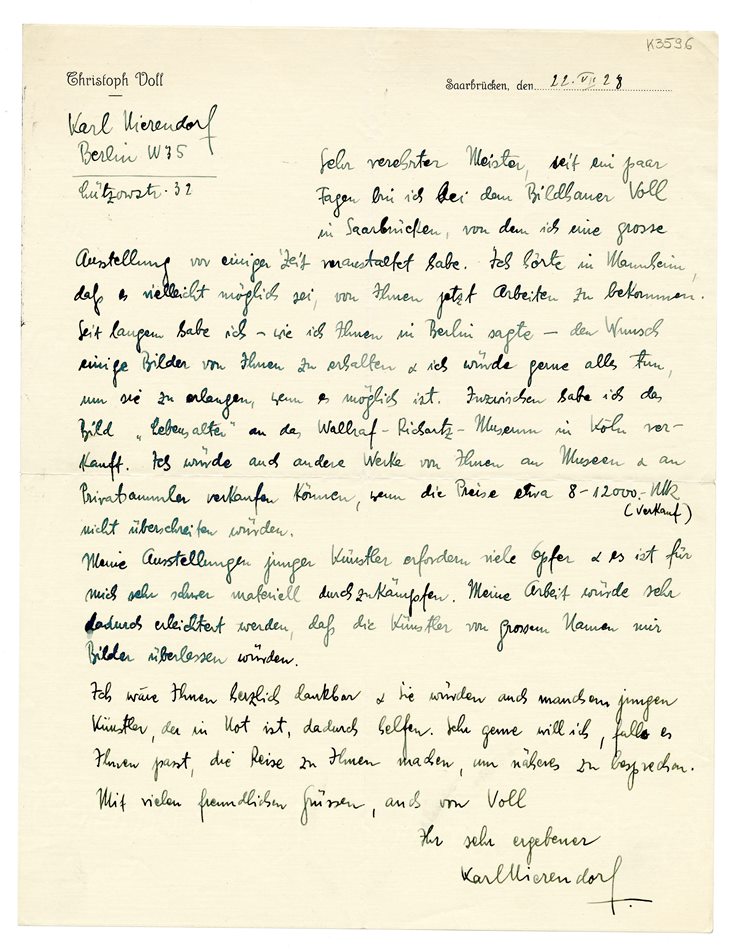 K3596
Christoph Voll
Saarbrücken, den 22. VII 28
Karl Nierendorf
Berlin W35
Lützowstr. 32
Sehr verehrter Meister, seit ein paar
Tagen bin ich bei dem Bildhauer Voll
in Saarbrücken, von dem ich eine grosse
Ausstellung vor einiger Zeit veranstaltet habe. Ich hörte in Mannheim,
daß es vielleicht möglich sei, von Ihnen jetzt Arbeiten zu bekommen.
Seit langem habe ich – wie ich Ihnen in Berlin sagte – den Wunsch
einige Bilder von Ihnen zu erhalten & ich würde gerne alles tun,
um sie zu erlangen, wenn es möglich ist. Inzwischen habe ich das
Bild „Lebensalter" an das Wallraf-Richartz-Museum in Köln ver-
kauft. Ich würde auch andere Werke von Ihnen an Museen & an
Privatsammler verkaufen können, wenn die Preise etwa 8-12000.- Mk
(Verkauf)
nicht überschreiten würden.
Meine Ausstellungen junger Künstler erfordern viele Opfer & es ist für
mich sehr schwer materiell durchzukämpfen. Meine Arbeit würde sehr
dadurch erleichtert werden, daß die Künstler von grossem Namen mir
Bilder überlassen würden.
Ich wäre Ihnen herzlich dankbar & Sie würden auch manchem jungen
Künstler, der in Not ist, dadurch helfen. Sehr gerne will ich, falls es
Ihnen passt, die Reise zu Ihnen machen, um näheres zu besprechen.
Mit vielen freundlichen Grüssen, auch von Voll
Ihr sehr ergebener
Karl Nierendorf